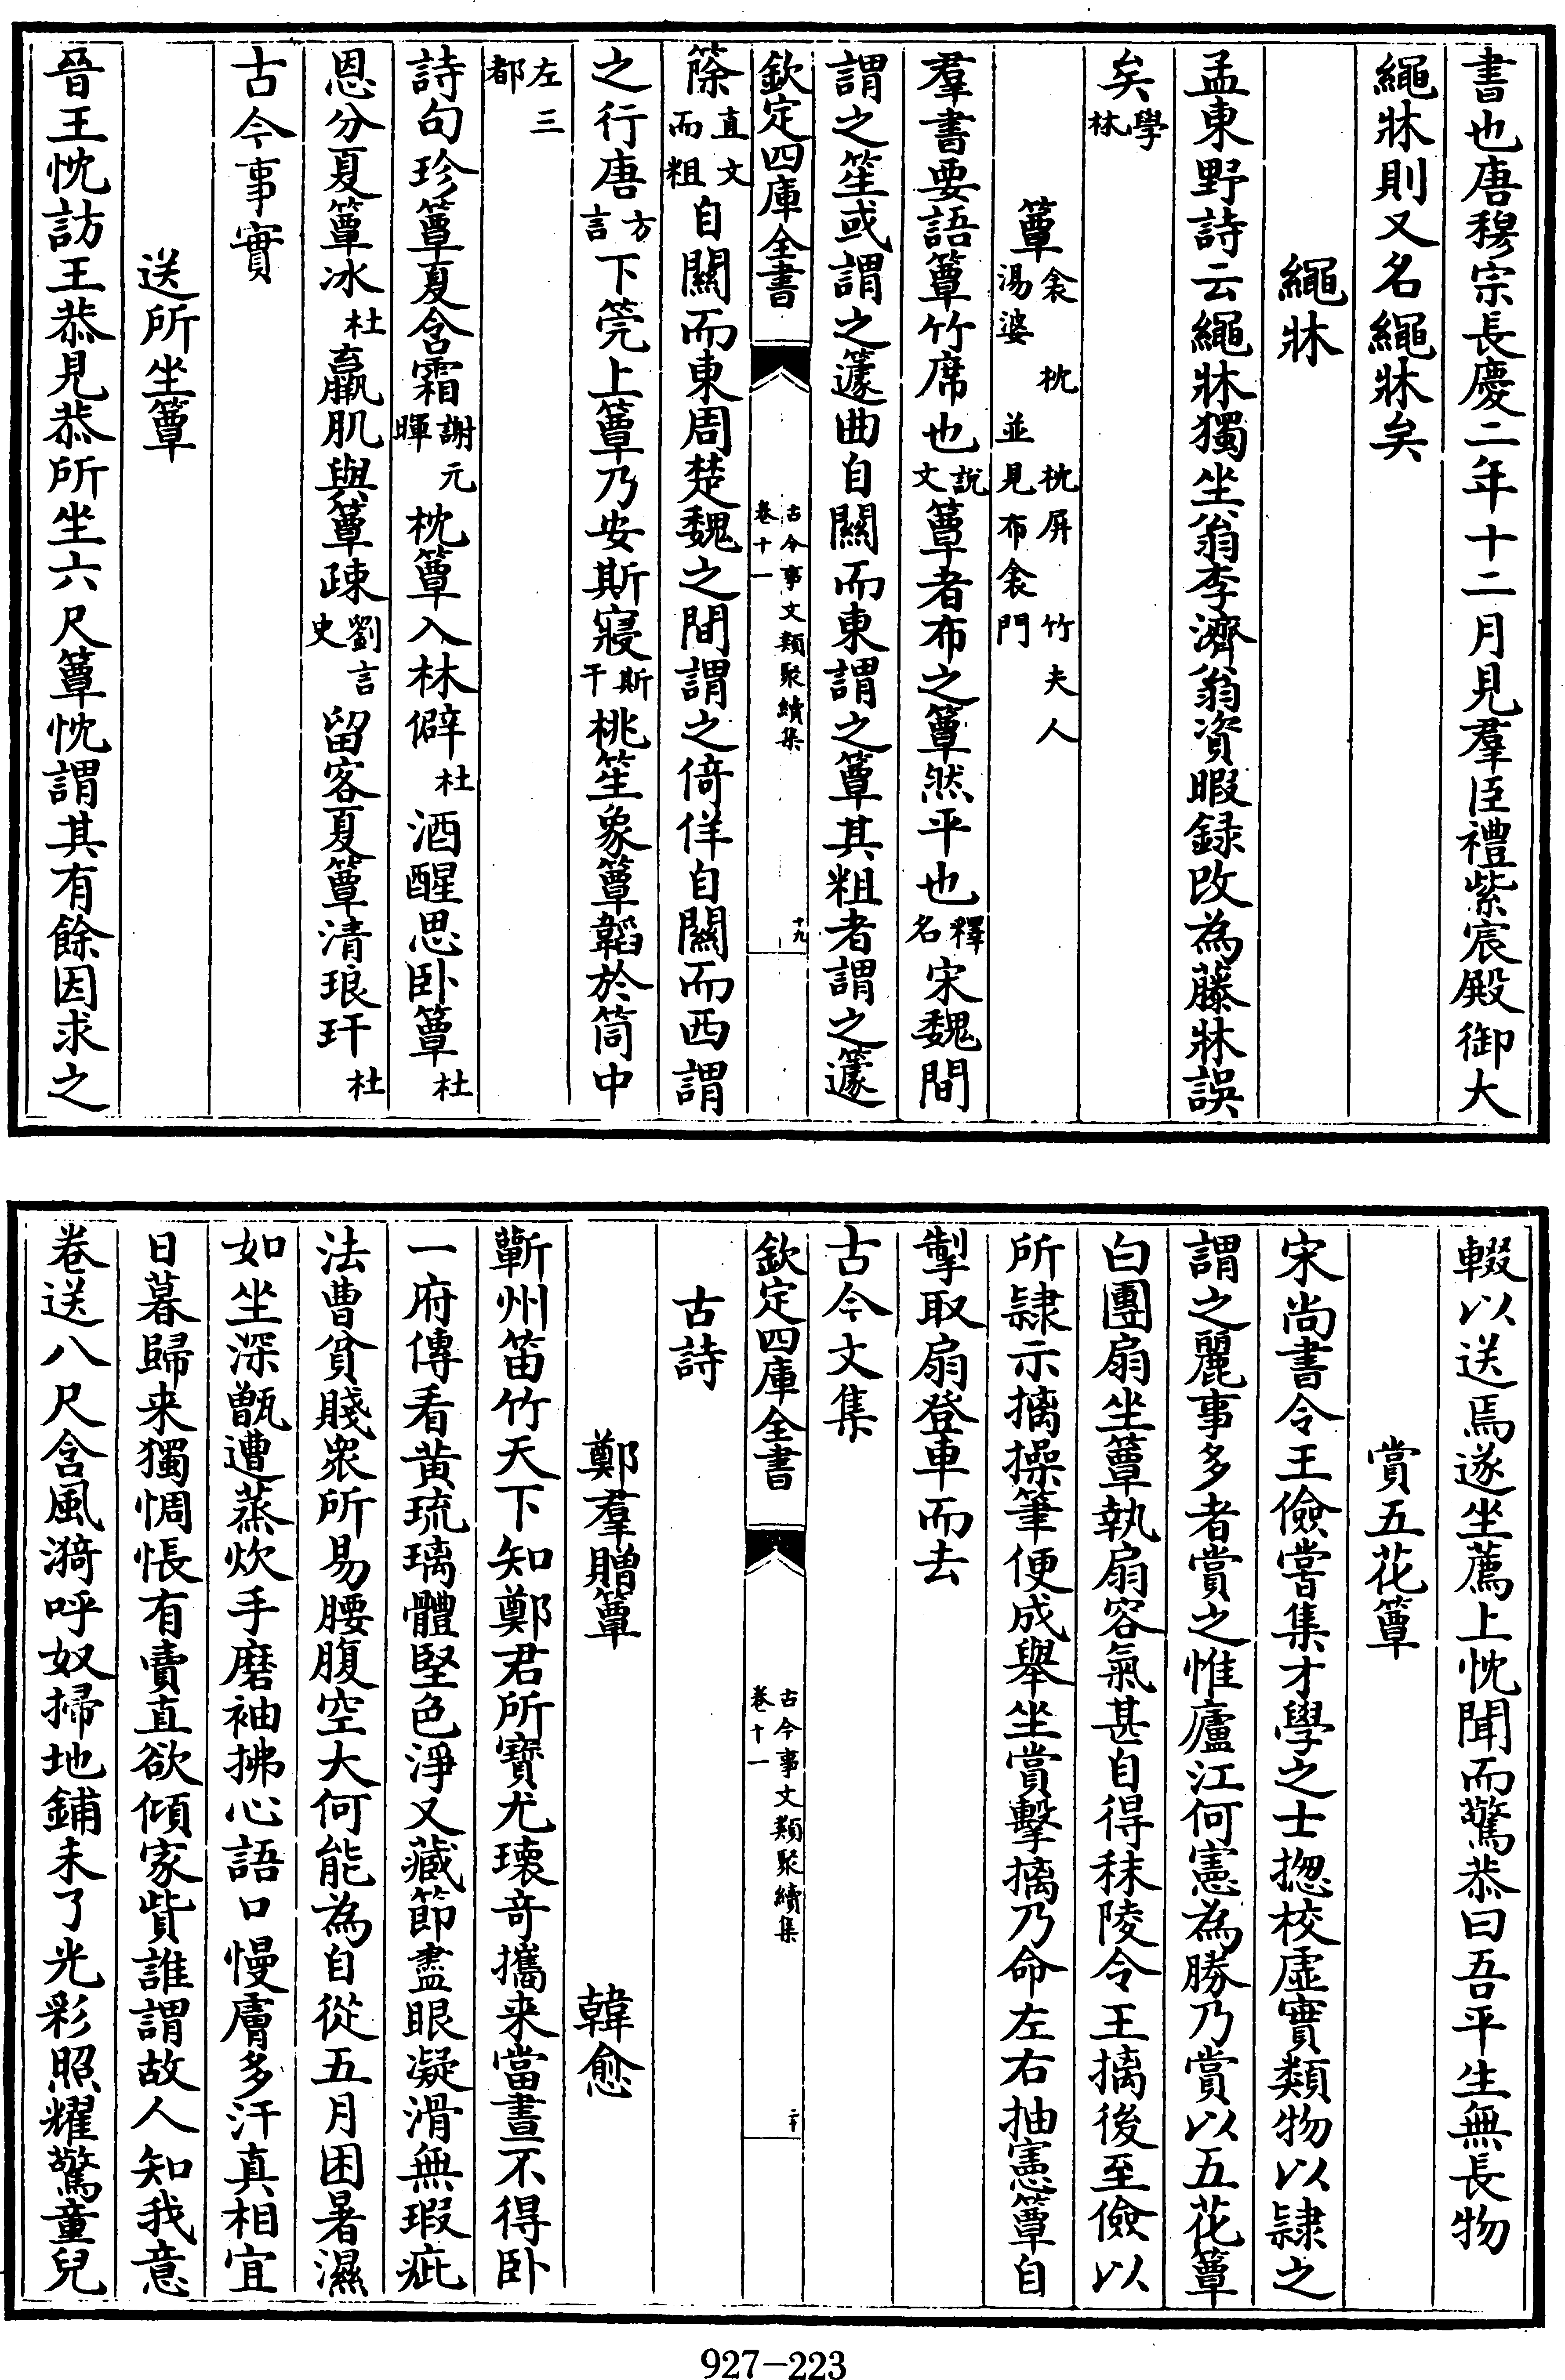 書也唐穆宗長慶二年十二月見羣臣禮紫宸殿御大
繩牀則又名繩牀矣
繩牀
孟東野詩云繩牀獨坐翁李濟翁資暇録改為藤牀誤
矣學林
簟衾枕枕屏竹夫人湯婆並見布衾門
羣書要語簟竹席也說文簟者布之簟然平也釋名宋魏間
謂之笙或謂之籧曲自關而東謂之簟其粗者謂之籧
欽定四庫全書 古今事文類聚續集卷十一 十九
篨直文而粗自關而東周楚魏之間謂之倚佯自關而西謂
之行唐方言下筦上簟乃安斯寢斯干桃笙象簟韜於筒中
左三都
詩句珍簟夏含霜謝元暉枕簟入林僻杜酒醒思卧簟杜
恩分夏簟冰杜羸肌與簟疎劉言史留客夏簟清琅玕杜
古今事實
送所坐簟
晉王忱訪王恭見恭所坐六尺簟忱謂其有餘因求之
輟以送焉遂坐薦上忱聞而驚恭曰吾平生無長物
賞五花簟
宋尚書令王儉嘗集才學之士揔校虛實類物以隸之
謂之麗事多者賞之惟廬江何憲為勝乃賞以五花簟
白團扇坐簟執扇容氣甚自得秣陵令王摛後至儉以
所隸示摛操筆便成舉坐賞擊摛乃命左右抽憲簟自
掣取扇登車而去
古今文集
欽定四庫全書 古今事文類聚續集卷十一 二十
古詩
鄭羣贈簟 韓愈
蘄州笛竹天下知鄭君所寳尤瓌奇攜来當晝不得卧
一府傳看黄琉璃體堅色淨又藏節盡眼凝滑無瑕疵
法曹貧賤衆所易腰腹空大何能為自從五月困暑濕
如坐深甑遭蒸炊手磨袖拂心語口慢膚多汗真相宜
日暮歸来獨惆悵有賣直欲傾家貲誰謂故人知我意
卷送八尺含風漪呼奴掃地鋪未了光彩照耀驚童兒
927-223